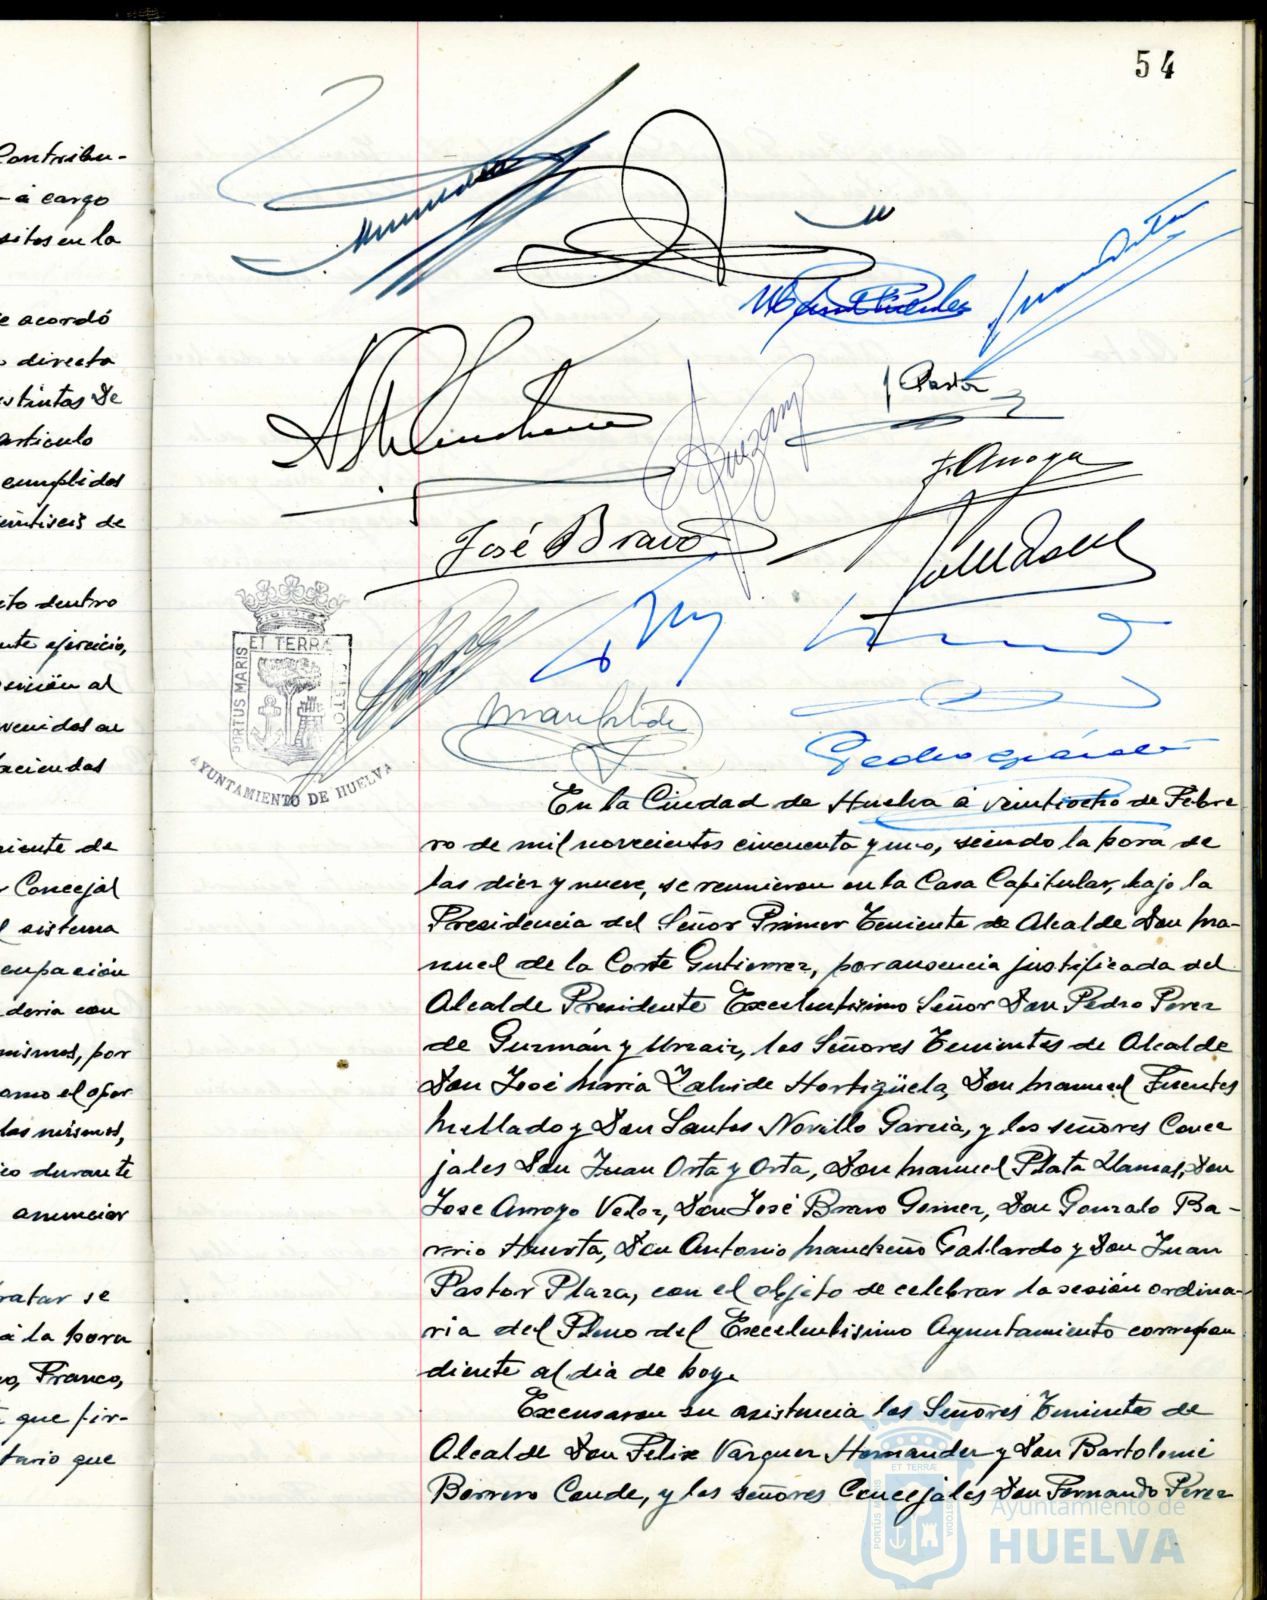 54
Contribu-
- á cargo
sitos en la
e acordó
directa
stintas de
articulo
cumplidos
eintiseis de
cto dentro
nte ejercicio,
sición al
venidas en
aciendas
niente de
r Concejal
l sistema
cupación
deria con
mismos, por
omo el opor
las mismas,
ico durante
anunciar
ratar se
á la hora
o, Franco,
que fir-
tario que
M Fuentes
J Pastor
J. Arroyo
José Bravo
ET TERRÆ
PORTUS MARIS
AYUNTAMIENTO DE HUELVA
En la Ciudad de Huelva á veintiocho de Febre
ro de mil novecientos cincuenta y uno, siendo la hora de
las diez y nueve, se reunieron en la Casa Capitular, bajo la
Presidencia del Señor Primer Teniente de Alcalde Don Ma-
nuel de la Corte Gutierrez, por ausencia justificada del
Alcalde Presidente Excelentisimo Señor Don Pedro Perez
de Guzmán y Urzaiz, los Señores Tenientes de Alcalde
Don José Maria Zalvide Hortigüela, Don Manuel Fuentes
Mellado y Don Santos Novillo Garcia, y los señores Conce
jales Don Juan Orta y Orta, Don Manuel Plata Llamas, Don
Jose Arroyo Vedor, Don José Bravo Gomez, Don Gonzalo Ba-
rrio Huerta, Don Antonio Mancheño Gallardo y Don Juan
Pastor Plaza, con el objeto de celebrar la sesión ordina-
ria del Pleno del Excelentisimo Ayuntamiento correspon
diente al dia de hoy.
Excusaron su asistencia los Señores Tenientes de
Alcalde Don Felix Vazquez Hernandez y Don Bartolomé
Borrero Conde, y los señores Concejales Don Fernando Perez
ET TERRÆ
PORTUS MARIS
CUSTODIA
Ayuntamiento de
HUELVA